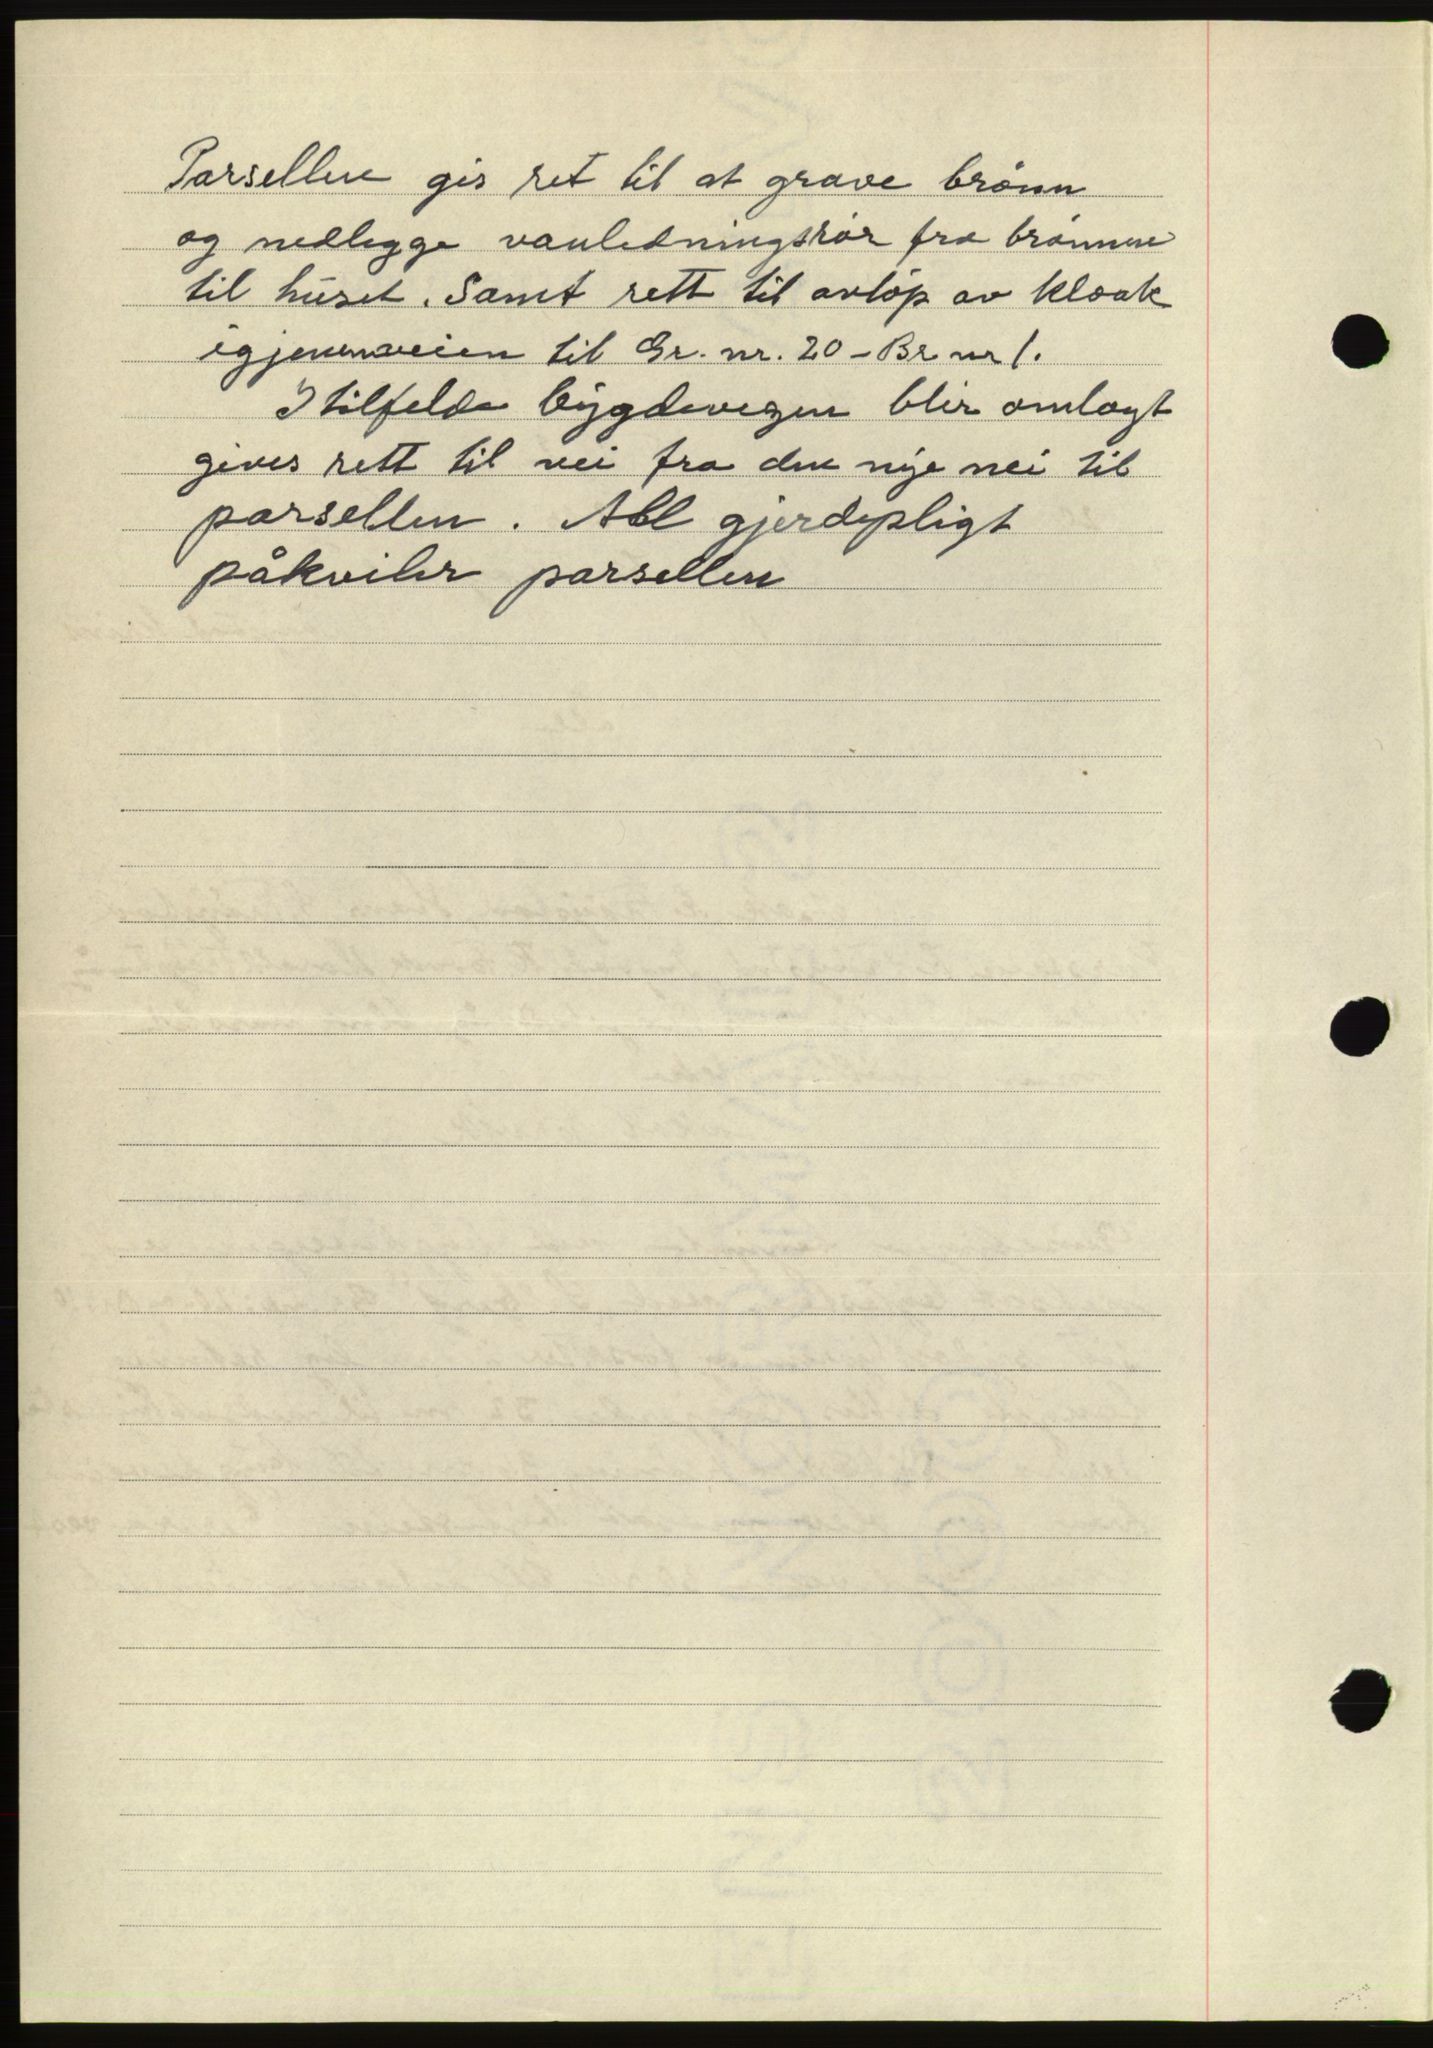 Parsellen gis ret til at grave brönn
og nedlegge vanledningsrör fra brönnen
til huset. Samt rett til avlöp av kloak
igjennemveien til Gr. nr. 20 – Br nr 1.
I tilfelde bygdevegen blir omlagt
gives rett til vei fra den nye vei til
parsellen. All gjerdepligt
påkviler parsellen